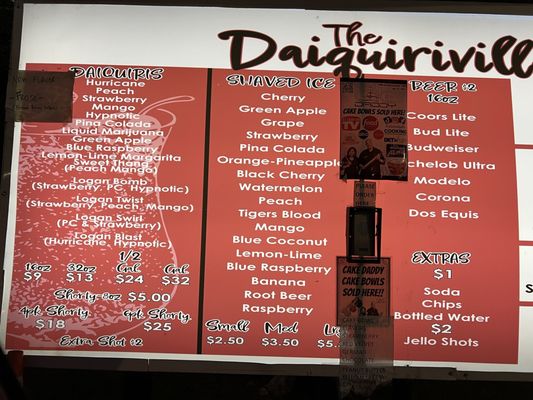 The
Daiquirivill
NEW FLAVOR
- FROSE -
DAIQUIRIS
Hurricane
Peach
Strawberry
Mango
Hypnotic
Pina Colada
Liquid Marijuana
Green Apple
Blue Raspberry
Lemon-Lime Margarita
Sweet Thang
(Peach Mango)
Logan Bomb
(Strawberry, PC, Hypnotic)
Logan Twist
(Strawberry, Peach, Mango)
Logan Swirl
(PC & Strawberry)
Logan Blast
(Hurricane, Hypnotic)
16oz 32oz 1/2 Gal Gal
$9 $13 $24 $32
Shorty 8oz $5.00
4pk Shorty 6pk Shorty
$18 $25
Extra Shot $2
SHAVED ICE
Cherry
Green Apple
Grape
Strawberry
Pina Colada
Orange-Pineapple
Black Cherry
Watermelon
Peach
Tigers Blood
Mango
Blue Coconut
Lemon-Lime
Blue Raspberry
Banana
Root Beer
Raspberry
Small Med
$2.50 $3.50 $5.
CAKE BOWLS
SOLD HERE!
COOKING
PLEASE
ORDER
HERE
CAKE DADDY
CAKE BOWLS
SOLD HERE!!
STRAWBERRY
RED VELVET
GERMAN
CHOCOLATE
PEANUT BUTTER
BEER $2
16oz
Coors Lite
Bud Lite
Budweiser
chelob Ultra
Modelo
Corona
Dos Equis
EXTRAS
$1
Soda
Chips
Bottled Water
$2
Jello Shots
S